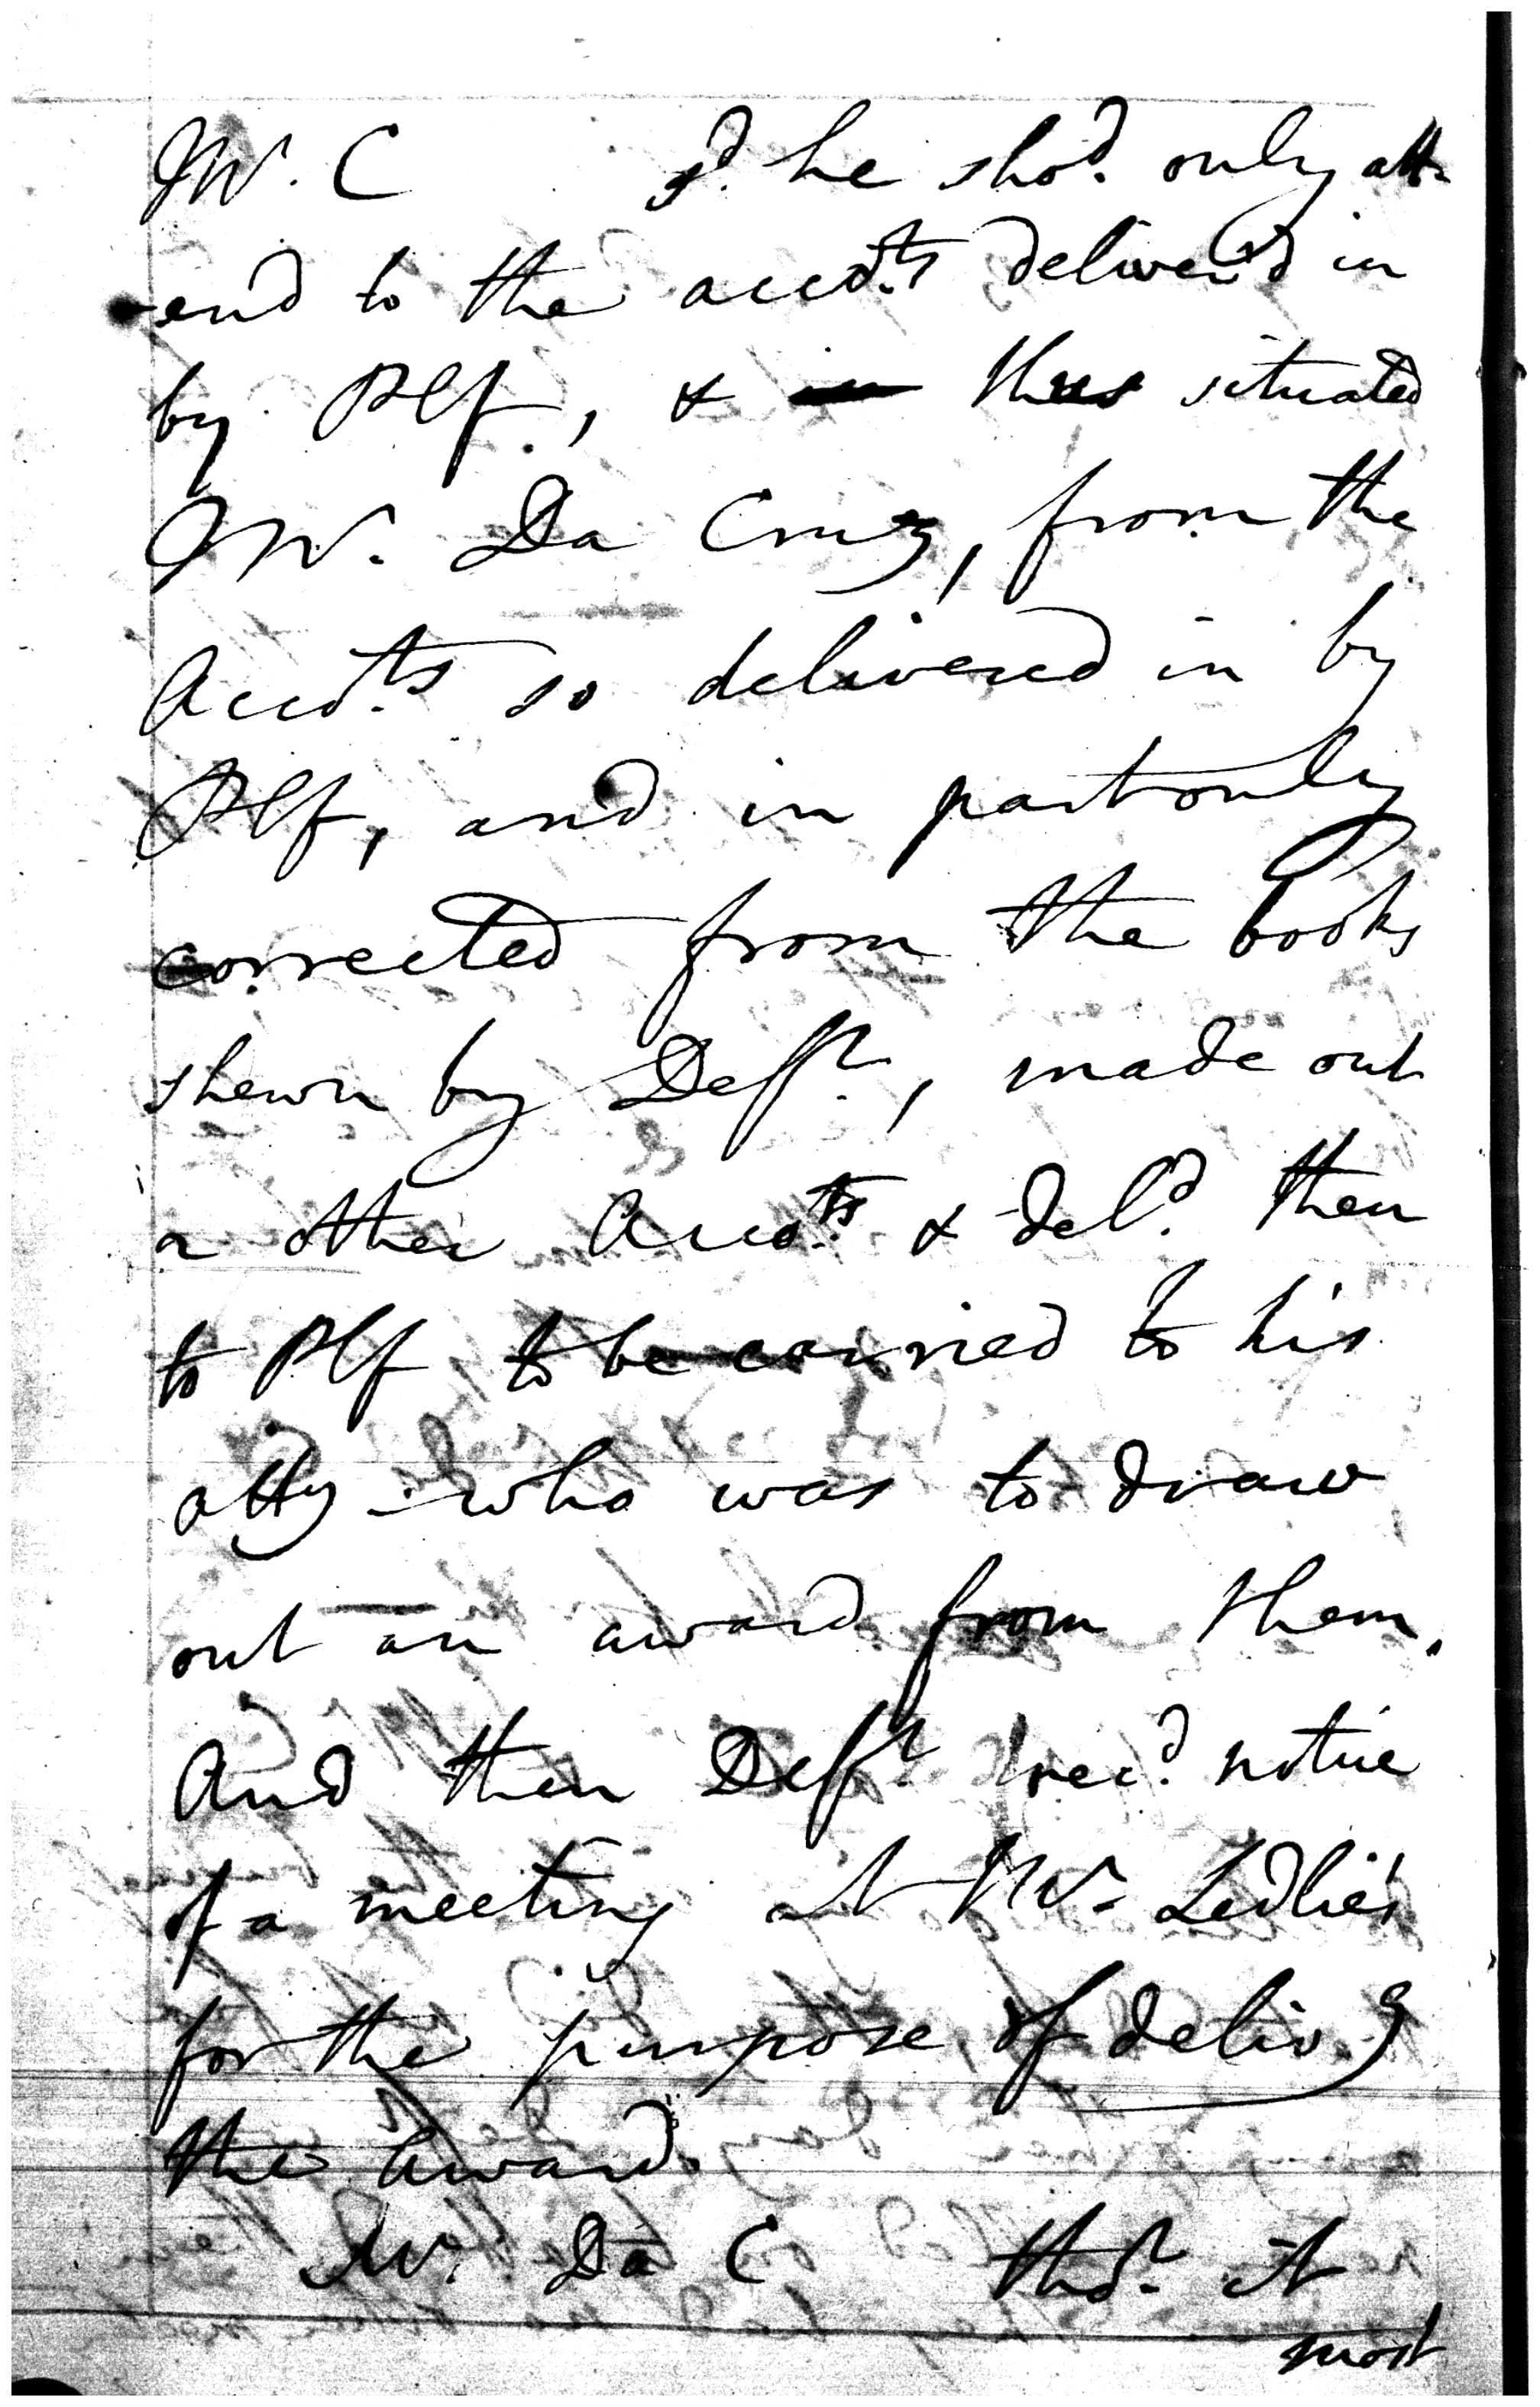 Mr. C sd. he shod. only att-
end to the accots deliver'd in
by Plf, & thus situated
Mr. Da Cruz, from the
Accots so delivered in by
Plf, and in part only
corrected from the books
shewn by Deft., made out
a other Accots. & deld. then
to Plf to be carried to his
atty who was to draw
out an award from them.
And then Deft. recd. notice
of a meeting at Mr. Ledlie's
for the purpose of delivg
the award.
Mr. Da C thot. it
most